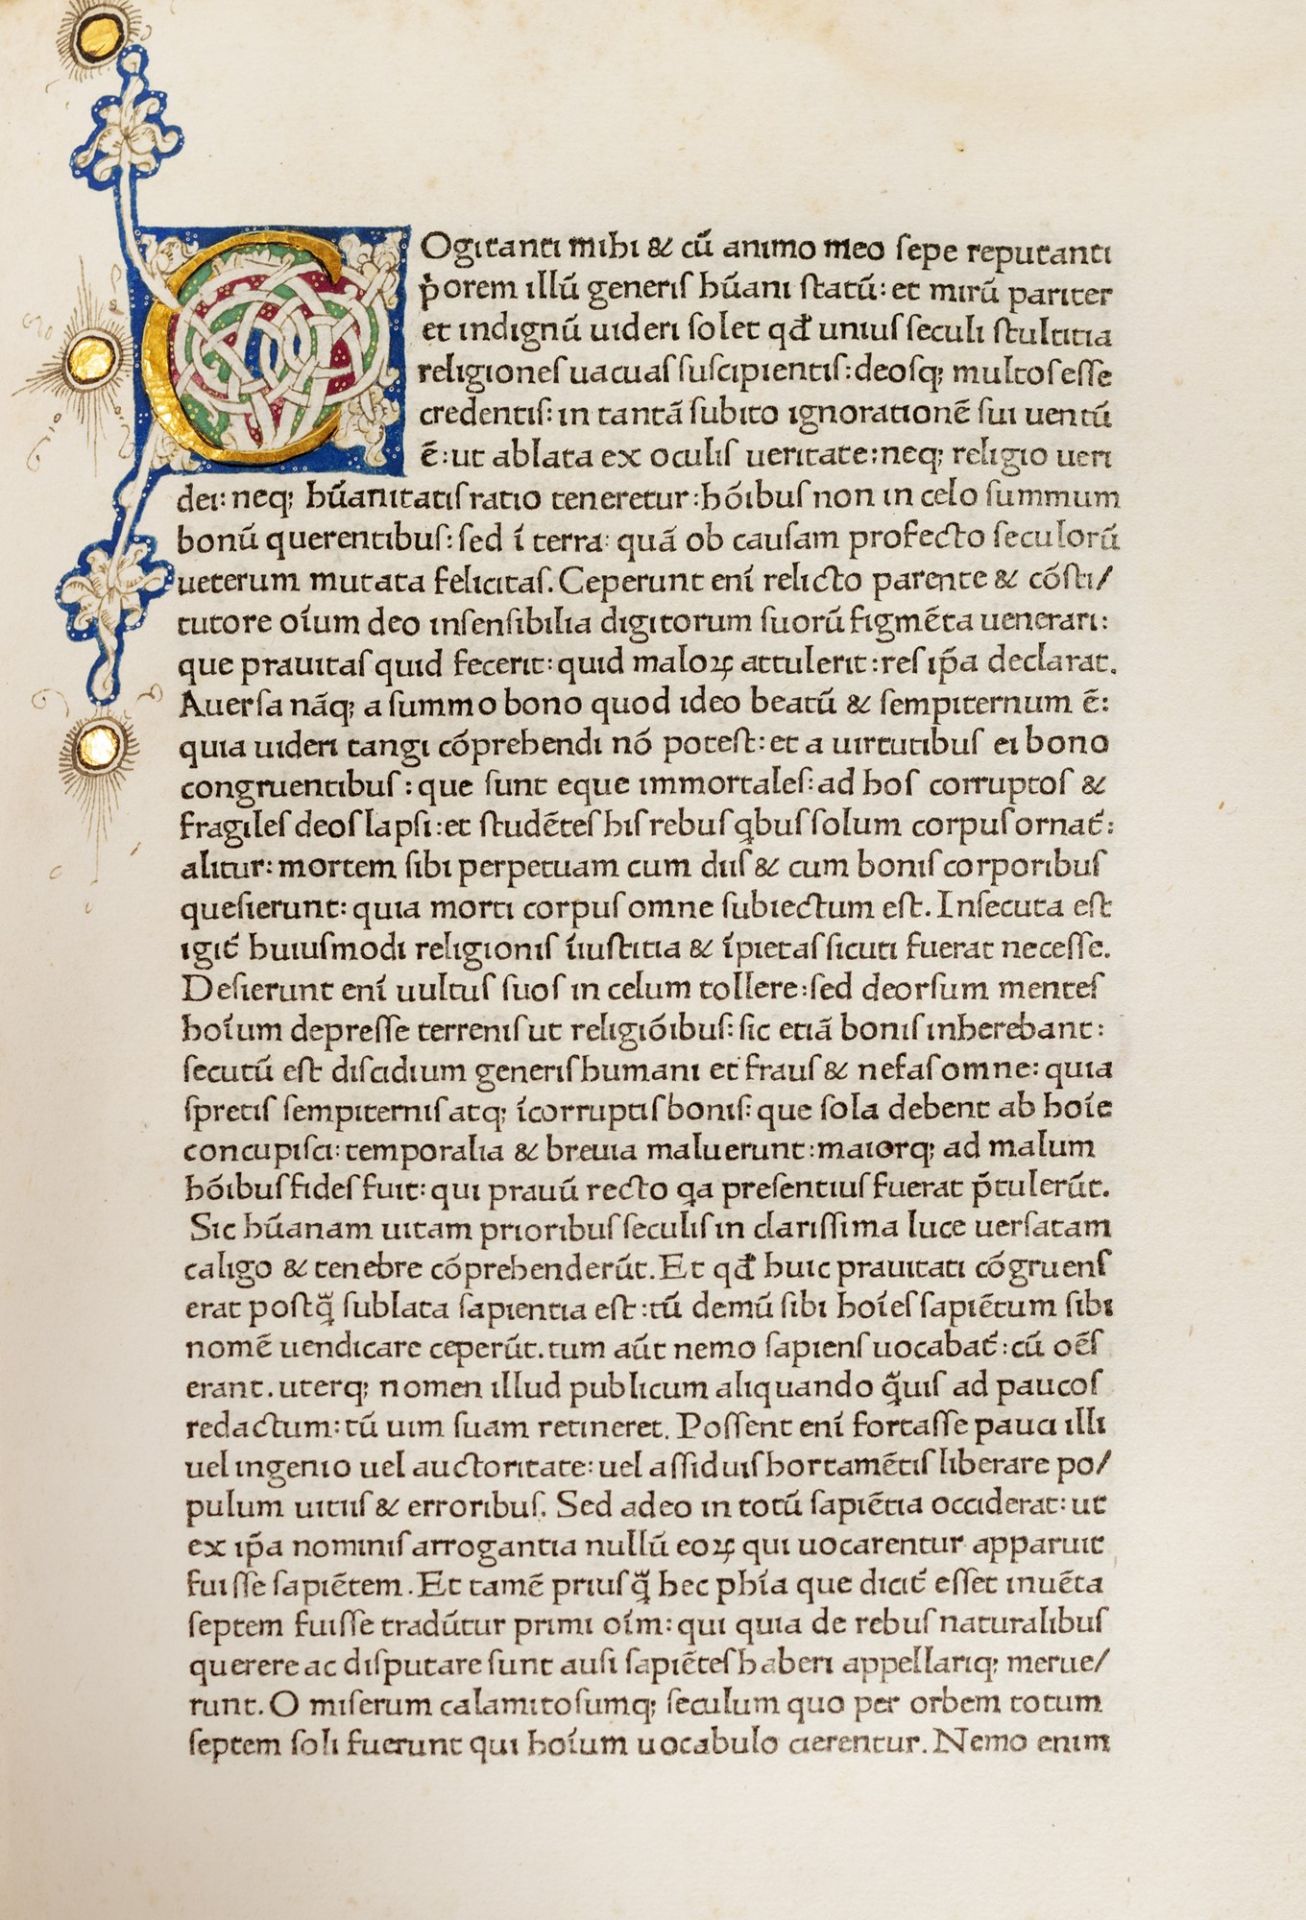 COgitanti mihi & cū animo meo ſepe reputanti
p̄orem illū generiſ hūani ſtatū: et mirū pariter
et indignū uideri ſolet qđ uniuſ ſeculi ſtultitia
religioneſ uacuaſ ſuſcipientiſ: deoſq; multoſ eſſe
credentiſ: in tantā ſubito ignorationē ſui uentū
ē: ut ablata ex oculiſ ueritate: neq; religio ueri
dei: neq; hūanitatiſ ratio teneretur: hōibuſ non in celo ſummum
bonū querentibuſ: ſed ī terra: quā ob cauſam profecto ſeculorū
ueterum mutata felicitaſ. Ceperunt enī relicto parente & cōſti/
tutore oīum deo inſenſibilia digitorum ſuorū figmēta uenerari:
que prauitaſ quid fecerit: quid maloꝝ attulerit: reſ ip̄a declarat.
Auerſa nāq; a ſummo bono quod ideo beatū & ſempiternum ē:
quia uideri tangi cōprehendi nō poteſt: et a uirtutibuſ ei bono
congruentibuſ: que ſunt eque immortaleſ: ad hoſ corruptoſ &
fragileſ deoſ lapſi: et ſtudēteſ hiſ rebuſ qͥbuſ ſolum corpuſ ornat᷑:
alitur: mortem ſibi perpetuam cum diiſ & cum boniſ corporibuſ
queſierunt: quia morti corpuſ omne ſubiectum eſt. Inſecuta eſt
igit᷑ huiuſmodi religioniſ īiuſtitia & īpietaſ ſicuti fuerat neceſſe.
Deſierunt enī uultuſ ſuoſ in celum tollere: ſed deorſum menteſ
hoīum depreſſe terreniſ ut religiōibuſ: ſic etiā boniſ inherebant:
ſecutū eſt diſcidium generiſ humani et frauſ & nefaſ omne: quia
ſpretiſ ſempiterniſ atq; īcorruptiſ boniſ: que ſola debent ab hoīe
concupiſci: temporalia & breuia maluerunt: maiorq; ad malum
hōibuſ fideſ fuit: qui prauū recto qͥa preſentiuſ fuerat p̄tulerūt.
Sic hūanam uitam prioribuſ ſeculiſ in clariſſima luce uerſatam
caligo & tenebre cōprehenderūt. Et qđ huic prauitati cōgruenſ
erat poſtqͣ̄ ſublata ſapientia eſt: tū demū ſibi hoīeſ ſapiētum ſibi
nomē uendicare ceperūt. tum aūt nemo ſapienſ uocabat᷑: cū oēſ
erant. uterq; nomen illud publicum aliquando qͣ̄uiſ ad paucoſ
redactum: tū uim ſuam retineret. Poſſent enī fortaſſe pauci illi
uel ingenio uel auctoritate: uel aſſiduiſ hortamētiſ liberare po/
pulum uitiiſ & erroribuſ. Sed adeo in totū ſapiētia occiderat: ut
ex ip̄a nominiſ arrogantia nullū eoꝝ qui uocarentur apparuit
fuiſſe ſapiētem. Et tamē priuſqͣ̄ hec phīa que dicit᷑ eſſet inuēta
ſeptem fuiſſe tradūtur primi oīm: qui quia de rebuſ naturalibuſ
querere ac diſputare ſunt auſi ſapiēteſ haberi appellariq; merue/
runt. O miſerum calamitoſumq; ſeculum quo per orbem totum
ſeptem ſoli fuerunt qui hoīum uocabulo cierentur. Nemo enim